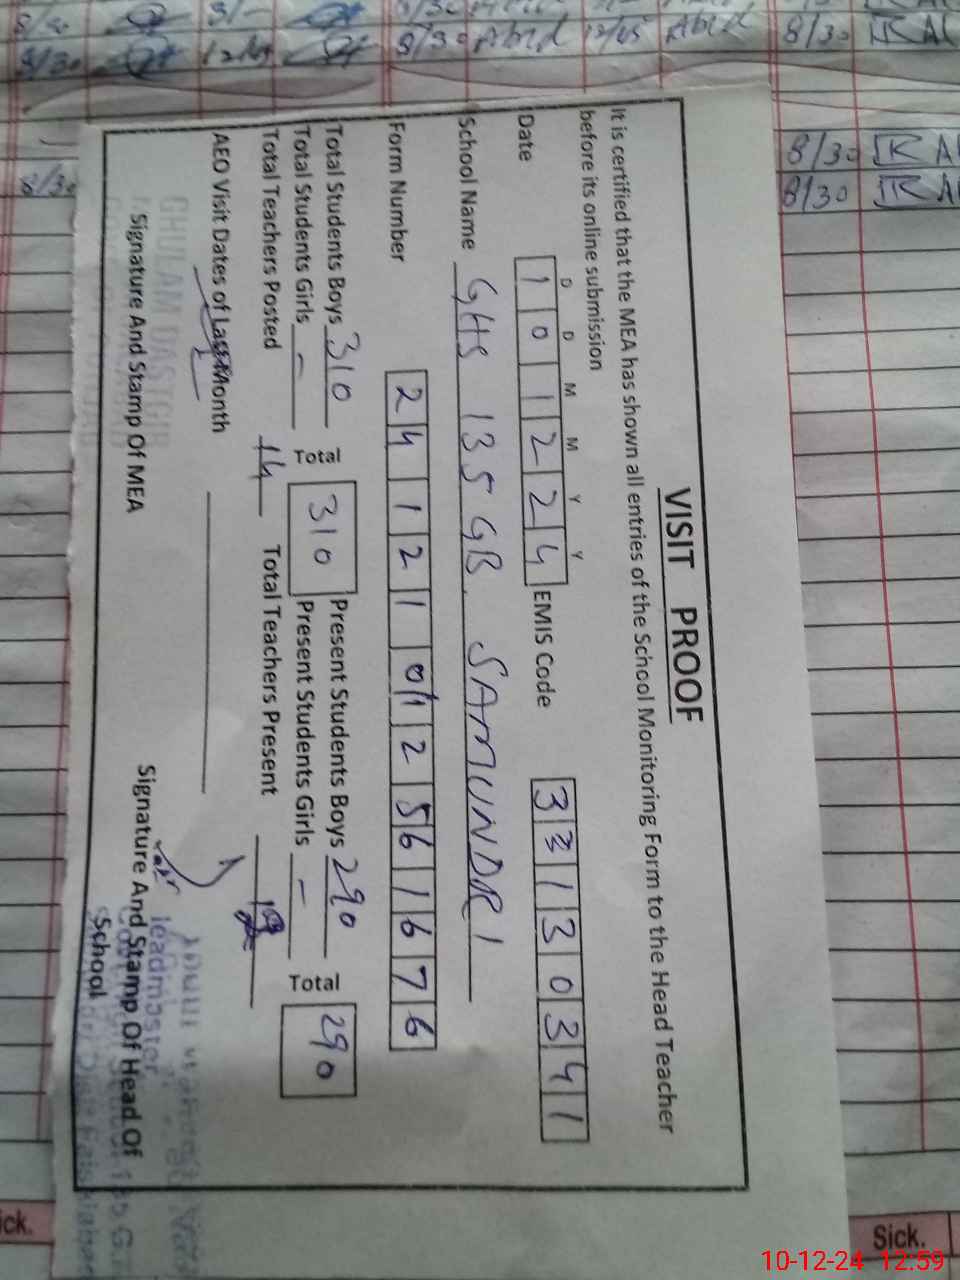 VISIT PROOF
It is certified that the MEA has shown all entries of the School Monitoring Form to the Head Teacher
before its online submission
D D M M Y Y
Date 1 0 1 2 2 4 EMIS Code 3 3 1 3 0 3 4 1
School Name GHS 135 GB. SAMUNDRI
Form Number 2 4 1 2 1 0 1 2 5 6 1 6 7 6
Total Students Boys 310 Total 310 Present Students Boys 290 Total 290
Total Students Girls - Present Students Girls -
Total Teachers Posted 14 Total Teachers Present
AEO Visit Dates of Last Month
Signature And Stamp Of MEA
Signature And Stamp Of Head Of
School
GHULAM DASTGIR
8/30 Abid 12/45 Abid 8/30
8/30
8/30
8/30
Sick.
10-12-24 12:59